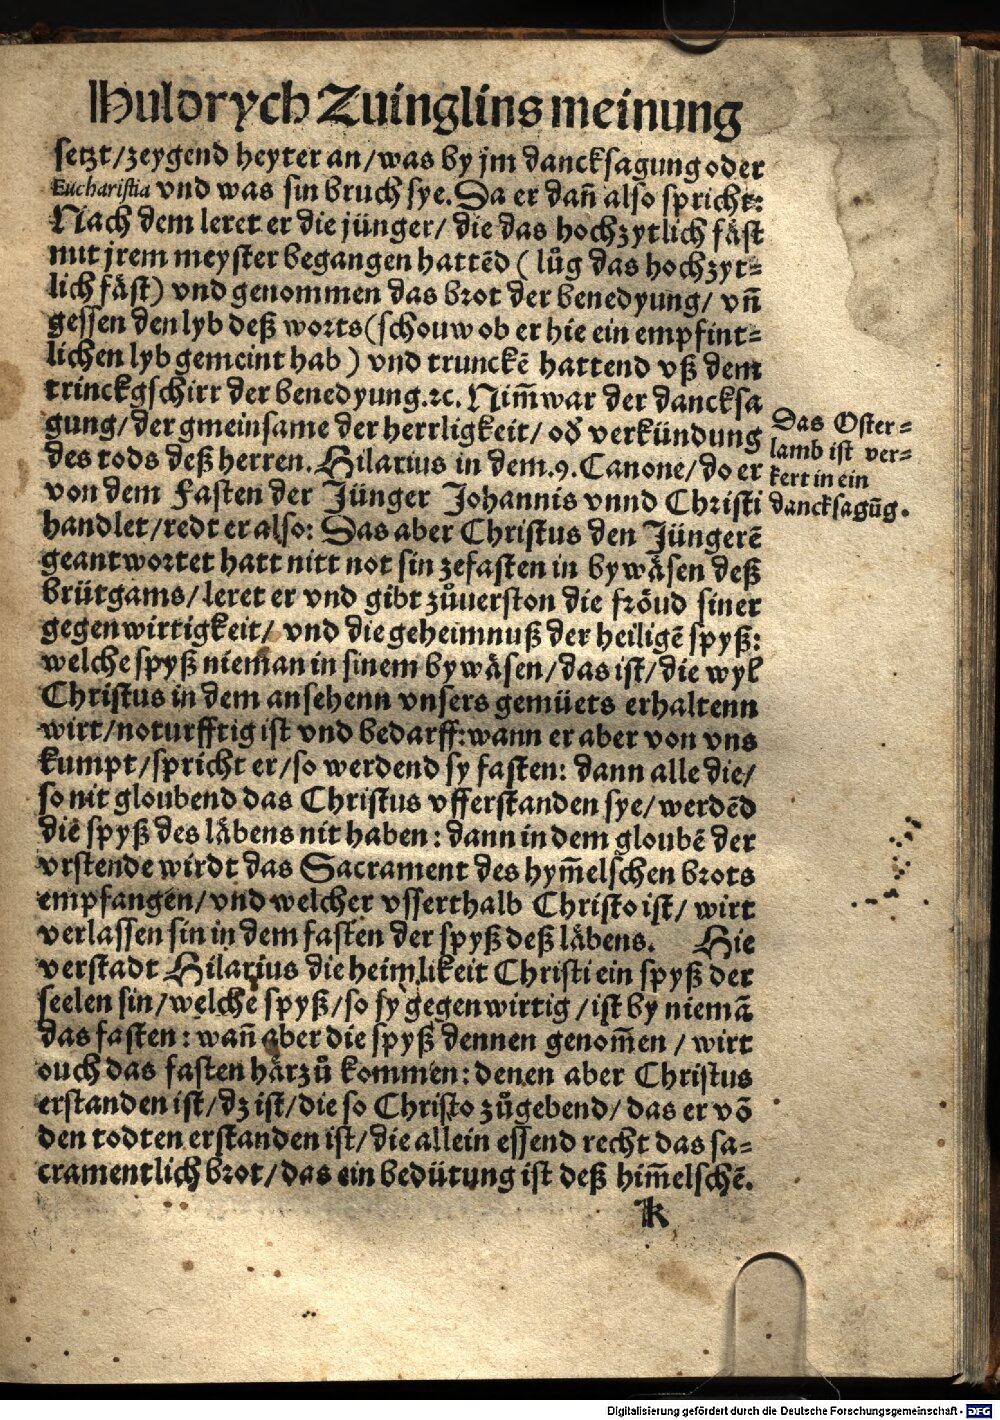 Huldrych Zuinglins meinung
setzt/zeygend heyter an/was by jm dancksagung oder
Eucharistia vnd was sin bruch sye. Da er dañ also spricht:
Nach dem leret er die jünger/ die das hochzytlich fäst
mit jrem meyster begangen hattēd ( lůg das hochzyt=
lich fäst) vnd genommen das brot der benedyung/ vñ
gessen den lyb deß worts (schouw ob er hie ein empfint=
lichen lyb gemeint hab ) vnd trunckē hattend vß dem
trinckgschirr der benedyung.ꝛc. Nim̄ war der dancksa
gung/ der gmeinsame der herrligkeit/ od̕ verkündung
des tods deß herren. Hilarius in dem .9. Canone/ do er
von dem Fasten der Jünger Johannis vnnd Christi
handlet/redt er also: Das aber Christus den Jüngerē
geantwortet hatt nitt not sin zefasten in bywäsen deß
brütgams/ leret er vnd gibt zůuerston die fröud siner
gegenwirtigkeit/ vnd die geheimnuß der heiligē spyß:
welche spyß nieman in sinem bywäsen/das ist/ die wyl
Christus in dem ansehenn vnsers gemüets erhaltenn
wirt/noturfftig ist vnd bedarff: wann er aber von vns
kumpt/spricht er/so werdend sy fasten: dann alle die/
so nit gloubend das Christus vfferstanden sye/ werdēd
die spyß des läbens nit haben : dann in dem gloubē der
vrstende wirdt das Sacrament des hym̄elschen brots
empfangen/ vnd welcher vsserthalb Christo ist/ wirt
verlassen sin in dem fasten der spyß deß läbens. Hie
verstadt Hilarius die heimlikeit Christi ein spyß der
seelen sin/welche spyß/so sy gegenwirtig /ist by niemā
das fasten : wañ aber die spyß dennen genom̄en / wirt
ouch das fasten härzů kommen: denen aber Christus
erstanden ist/dz ist/die so Christo zůgebend/ das er vō
den todten erstanden ist/die allein essend recht das sa=
cramentlich brot/das ein bedütung ist deß him̄elschē.
k
Das Oster=
lamb ist ver=
kert in ein
dancksagūg.
Digitalisierung gefördert durch die Deutsche Forschungsgemeinschaft - DFG